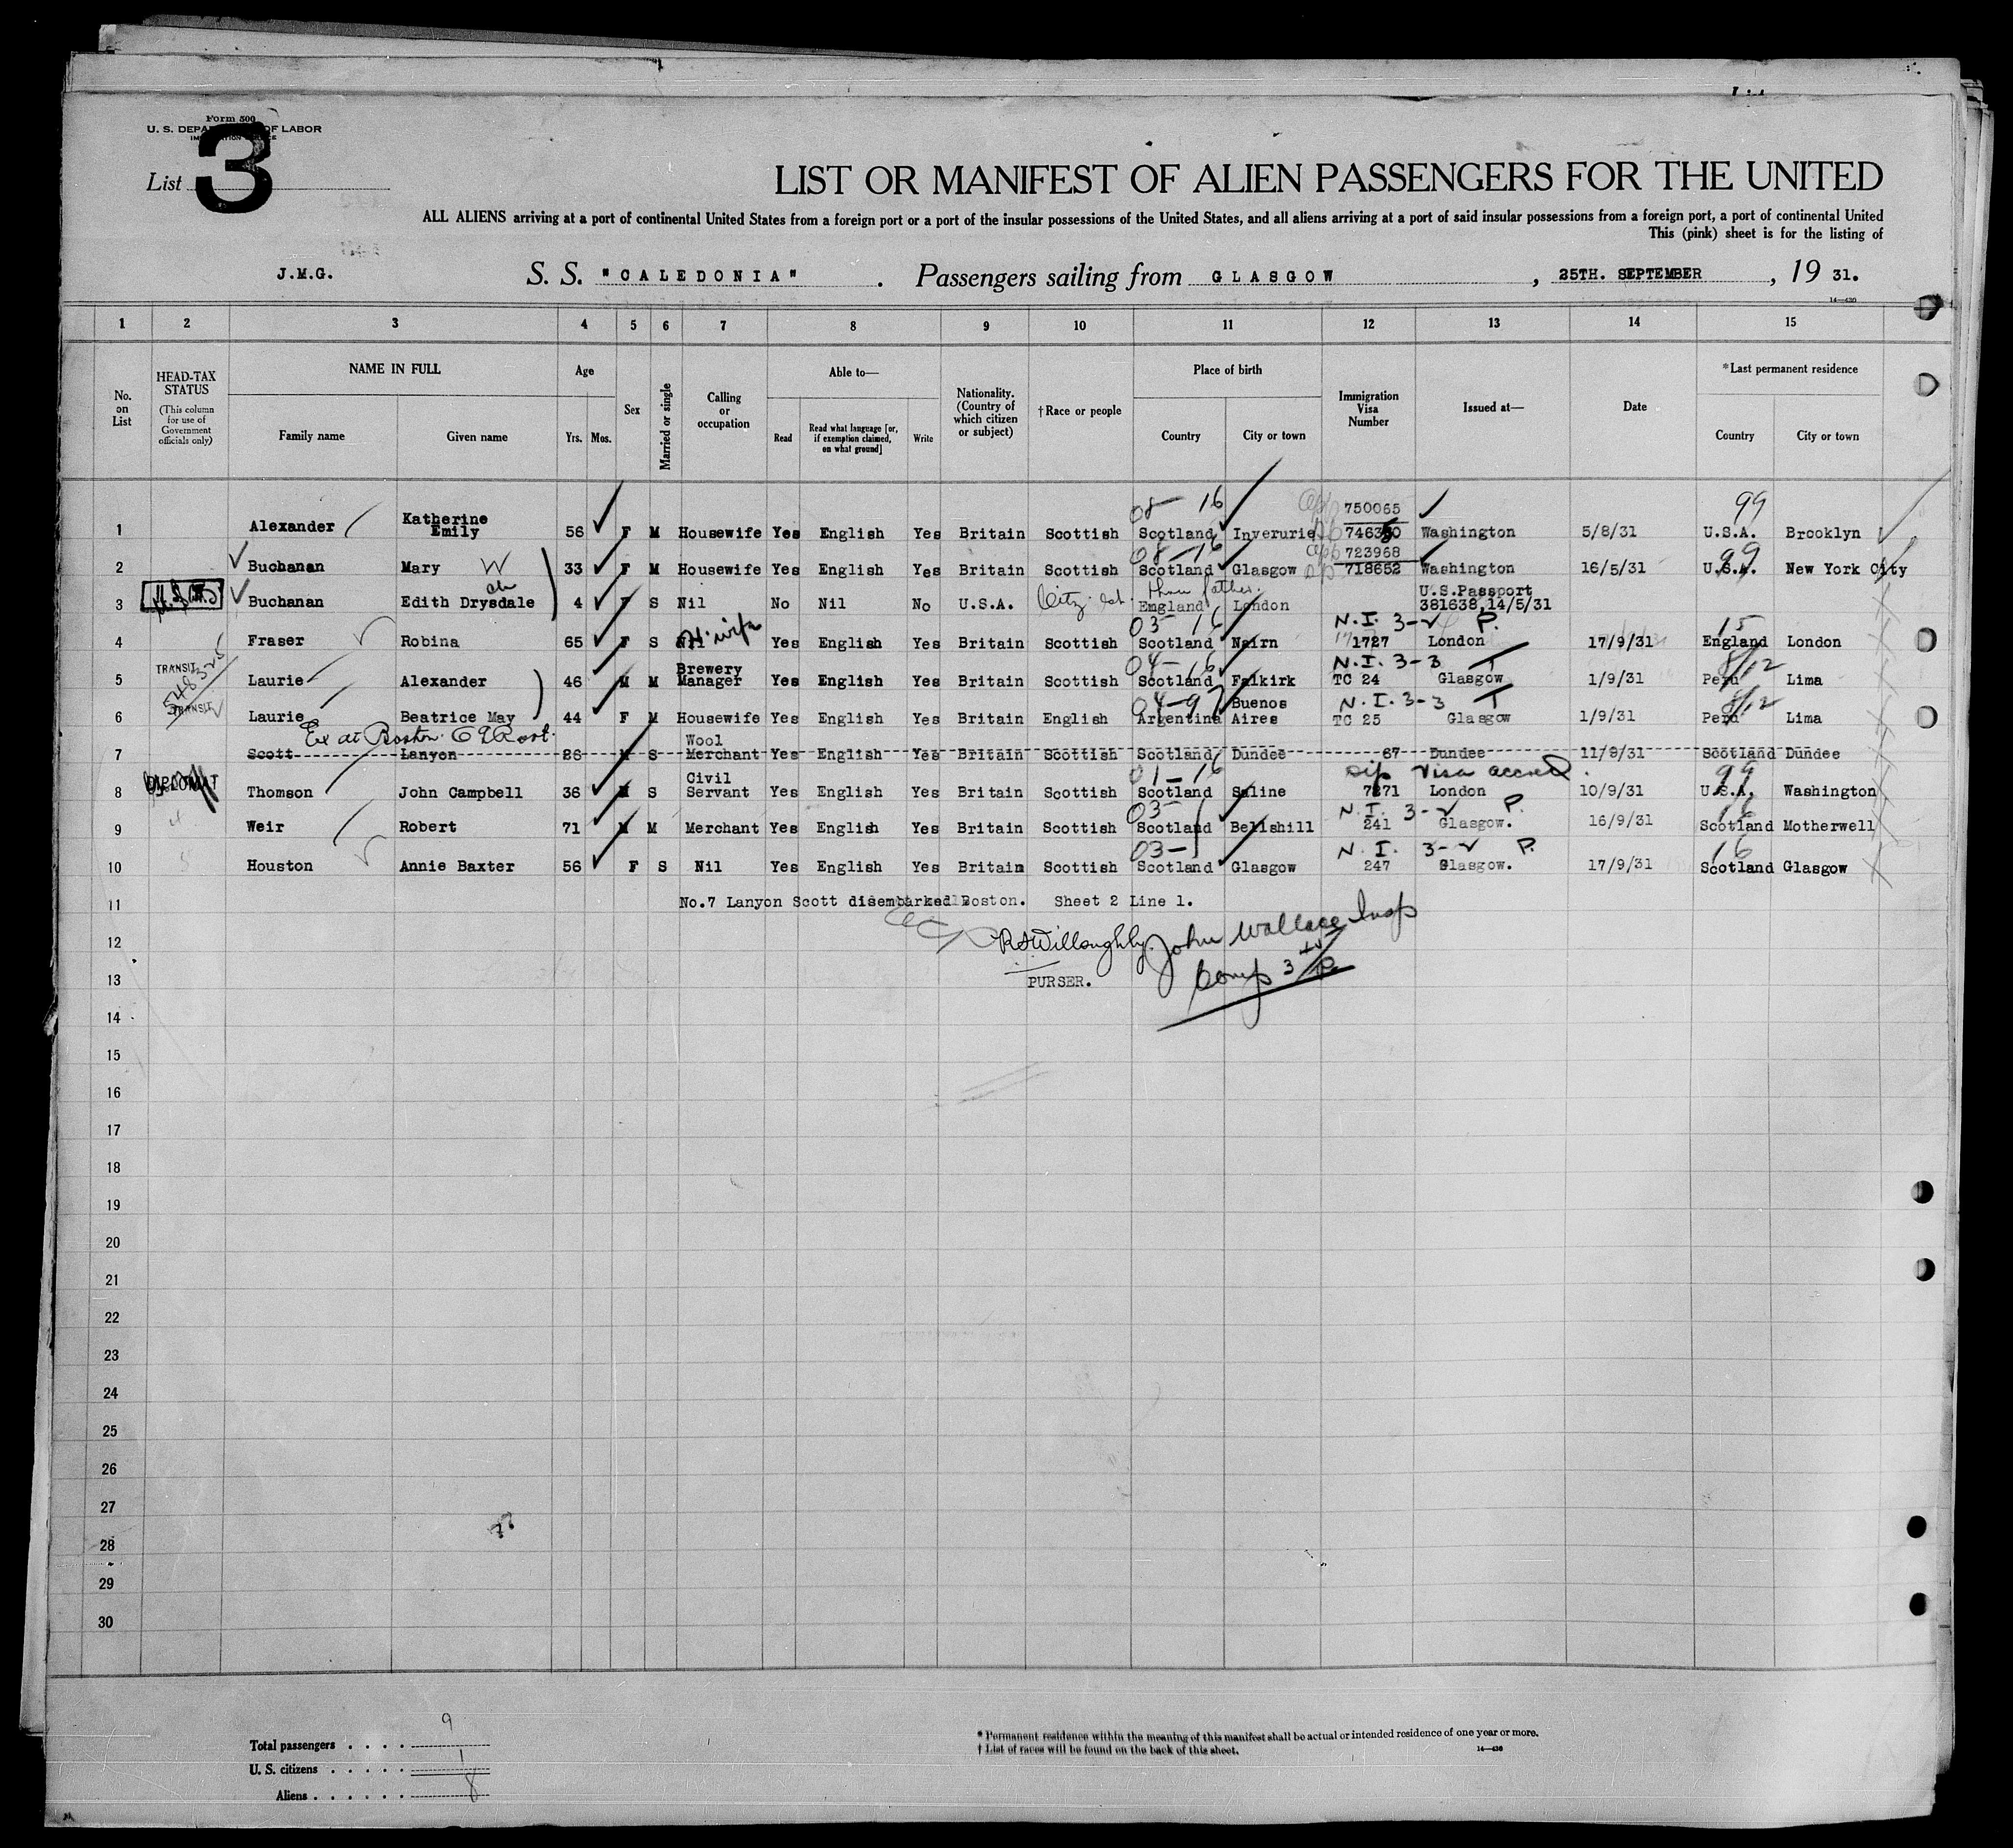 Form 500
U. S. DEPARTMENT OF LABOR
List 3
LIST OR MANIFEST OF ALIEN PASSENGERS FOR THE UNITED
ALL ALIENS arriving at a port of continental United States from a foreign port or a port of the insular possessions of the United States, and all aliens arriving at a port of said insular possessions from a foreign port, a port of continental United
This (pink) sheet is for the listing of
J.M.G. S. S. "CALEDONIA". Passengers sailing from GLASGOW, 25TH. SEPTEMBER, 19 31.
1 2 3 4 5 6 7 8 9 10 11 12 13 14 15
No. on List
HEAD-TAX STATUS (This column for use of Government officials only)
NAME IN FULL Family name Given name
Age Yrs. Mos.
Sex
Married or single
Calling or occupation
Able to— Read Read what language [or, if exemption claimed, on what ground] Write
Nationality. (Country of which citizen or subject)
†Race or people
Place of birth Country City or town
Immigration Visa Number
Issued at—
Date
*Last permanent residence Country City or town
08—16 750065 99
1 Alexander Katherine Emily 56 F M Housewife Yes English Yes Britain Scottish Scotland Inverurie 746350 Washington 5/8/31 U.S.A. Brooklyn
08—16 723968 99
2 Buchanan Mary W 33 F M Housewife Yes English Yes Britain Scottish Scotland Glasgow 718652 Washington 16/5/31 U.S.A. New York City
3 Buchanan Edith Drysdale 4 F S Nil No Nil No U.S.A. Citz. thru father. England London U.S.Passport 381638,14/5/31
03 16 N.I. 3-2 P. 15
4 Fraser Robina 65 F S Nil H.wife Yes English Yes Britain Scottish Scotland Nairn 1727 London 17/9/31 England London
TRANSIT 04—16 N.I. 3-3 T 8/12
5 Laurie Alexander 46 M M Brewery Manager Yes English Yes Britain Scottish Scotland Falkirk TC 24 Glasgow 1/9/31 Peru Lima
TRANSIT 04—97 N.I. 3-3 T 8/12
6 Laurie Beatrice May 44 F M Housewife Yes English Yes Britain English Argentina Buenos Aires TC 25 Glasgow 1/9/31 Peru Lima
Ex at Boston.
7 Scott Lanyon 26 M S Wool Merchant Yes English Yes Britain Scottish Scotland Dundee 67 Dundee 11/9/31 Scotland Dundee
DIPLOMAT 01—16 Dip Visa accred. 99
8 Thomson John Campbell 36 M S Civil Servant Yes English Yes Britain Scottish Scotland Saline 7271 London 10/9/31 U.S.A. Washington
03 N.I. 3-2 P. 16
9 Weir Robert 71 M M Merchant Yes English Yes Britain Scottish Scotland Bellshill 241 Glasgow. 16/9/31 Scotland Motherwell
03— N.I. 3-2 P. 16
10 Houston Annie Baxter 56 F S Nil Yes English Yes Britain Scottish Scotland Glasgow 247 Glasgow. 17/9/31 Scotland Glasgow
11 No.7 Lanyon Scott disembarked Boston. Sheet 2 Line 1.
12 RSWilloughby John Wallace Insp
13 PURSER. Comp 3
14
15
16
17
18
19
20
21
22
23
24
25
26
27
28
29
30
Total passengers . . . . 9
U. S. citizens . . . . . 1
Aliens . . . . . . 8
* Permanent residence within the meaning of this manifest shall be actual or intended residence of one year or more.
† List of races will be found on the back of this sheet.
14—430